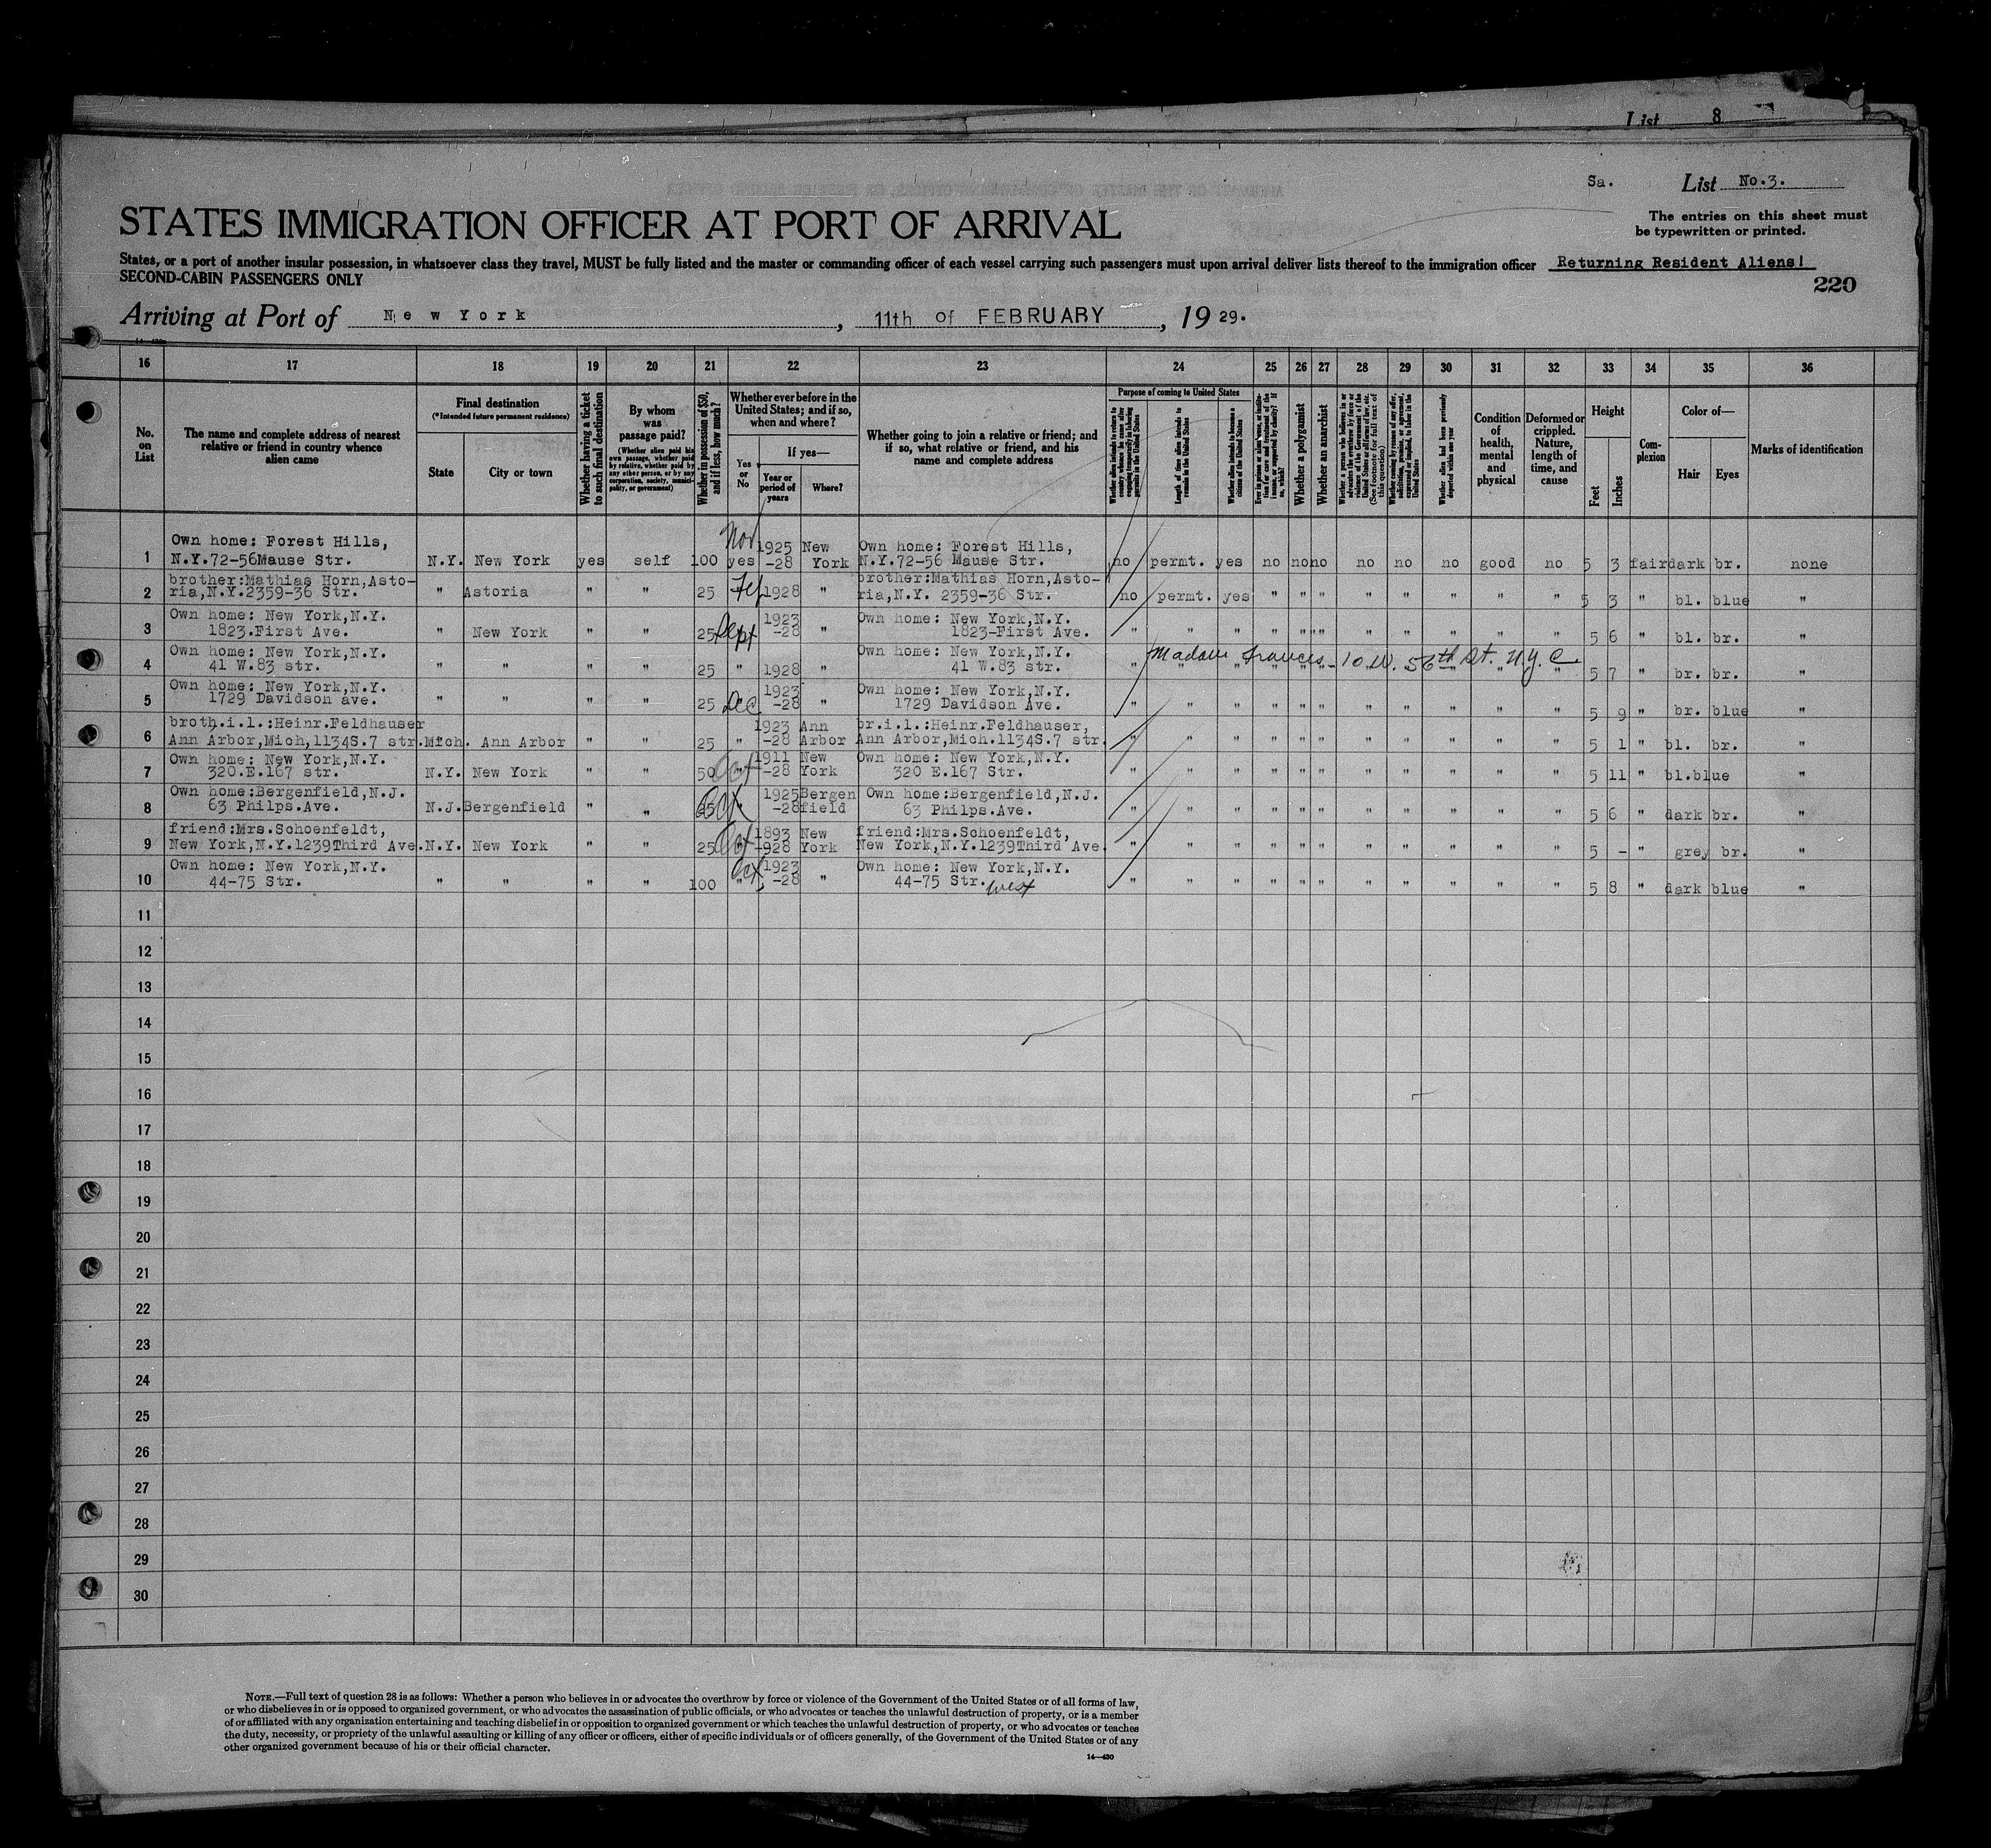 List 8
Sa. List No.3.
STATES IMMIGRATION OFFICER AT PORT OF ARRIVAL
The entries on this sheet must
be typewritten or printed.
States, or a port of another insular possession, in whatsoever class they travel, MUST be fully listed and the master or commanding officer of each vessel carrying such passengers must upon arrival deliver lists thereof to the immigration officer Returning Resident Aliens!
SECOND-CABIN PASSENGERS ONLY
220
Arriving at Port of New York, 11th of FEBRUARY, 19 29.
16 17 18 19 20 21 22 23 24 25 26 27 28 29 30 31 32 33 34 35 36
No. on List
The name and complete address of nearest relative or friend in country whence alien came
Final destination
(*Intended future permanent residence)
State
City or town
Whether having a ticket to such final destination
By whom was passage paid?
(Whether alien paid his own passage, whether paid by relative, whether paid by any other person, or by any corporation, society, municipality, or government)
Whether in possession of $50, and if less, how much?
Whether ever before in the United States; and if so, when and where?
Yes or No
If yes—
Year or period of years
Where?
Whether going to join a relative or friend; and if so, what relative or friend, and his name and complete address
Purpose of coming to United States
Length of time alien intends to remain in the United States
Whether alien intends to become a citizen of the United States
Whether a polygamist
Whether an anarchist
Whether alien had been previously deported within one year
Condition of health, mental and physical
Deformed or crippled. Nature, length of time, and cause
Height
Feet
Inches
Complexion
Color of—
Hair
Eyes
Marks of identification
1 Own home: Forest Hills, N.Y.72-56Mause Str. N.Y. New York yes self 100 Nov yes 1925 -28 New York Own home: Forest Hills, N.Y.72-56 Mause Str. no permt. yes no no no no no no good no 5 3 fair dark br. none
2 brother:Mathias Horn,Asto- ria,N.Y.2359-36 Str. " Astoria " " 25 1928 " brother:Mathias Horn,Asto- ria,N.Y. 2359-36 Str. no permt. yes " " " " " " " " 5 3 " bl. blue "
3 Own home: New York,N.Y. 1823.First Ave. " New York " " 25 Sept 1923 -28 " Own home: New York,N.Y. 1823-First Ave. " " " " " " " " " " " 5 6 " bl. br. "
4 Own home: New York,N.Y. 41 W.83 str. " " " " 25 " 1928 " Own home: New York,N.Y. 41 W.83 str. " Madam Frances - 10 W. 56th St. N.Y.C. 5 7 " br. br. "
5 Own home: New York,N.Y. 1729 Davidson ave. " " " " 25 Dec 1923 -28 " Own home: New York,N.Y. 1729 Davidson Ave. " " " " " " " " " " " 5 9 " br. blue "
6 broth.i.l.:Heinr.Feldhauser Ann Arbor,Mich,1134S.7 str. Mich. Ann Arbor " " 25 " 1923 -28 Ann Arbor br.i.l.:Heinr.Feldhauser, Ann Arbor,Mich.1134S.7 str. " " " " " " " " " " " 5 1 " bl. br. "
7 Own home: New York,N.Y. 320.E.167 str. N.Y. New York " " 50 Oct 1911 -28 New York Own home: New York,N.Y. 320 E.167 Str. " " " " " " " " " " " 5 11 " bl.blue "
8 Own home:Bergenfield,N.J. 63 Philps.Ave. N.J. Bergenfield " " 25 Oct 1925 -28 Bergen field Own home:Bergenfield,N.J. 63 Philps.Ave. " " " " " " " " " " " 5 6 " dark br. "
9 friend:Mrs.Schoenfeldt, New York,N.Y.1239Third Ave. N.Y. New York " " 25 Oct 1893 -928 New York friend:Mrs.Schoenfeldt, New York,N.Y.1239Third Ave. " " " " " " " " " " " 5 - " grey br. "
10 Own home: New York,N.Y. 44-75 Str. " " " " 100 Oct " 1923 -28 " Own home: New York,N.Y. 44-75 Str. West " " " " " " " " " " " 5 8 " dark blue "
11
12
13
14
15
16
17
18
19
20
21
22
23
24
25
26
27
28
29
30
NOTE.—Full text of question 28 is as follows: Whether a person who believes in or advocates the overthrow by force or violence of the Government of the United States or of all forms of law,
or who disbelieves in or is opposed to organized government, or who advocates the assassination of public officials, or who advocates or teaches the unlawful destruction of property, or is a member
of or affiliated with any organization entertaining and teaching disbelief in or opposition to organized government or which teaches the unlawful destruction of property, or who advocates or teaches
the duty, necessity, or propriety of the unlawful assaulting or killing of any officer or officers, either of specific individuals or of officers generally, of the Government of the United States or of any
other organized government because of his or their official character.
14—430